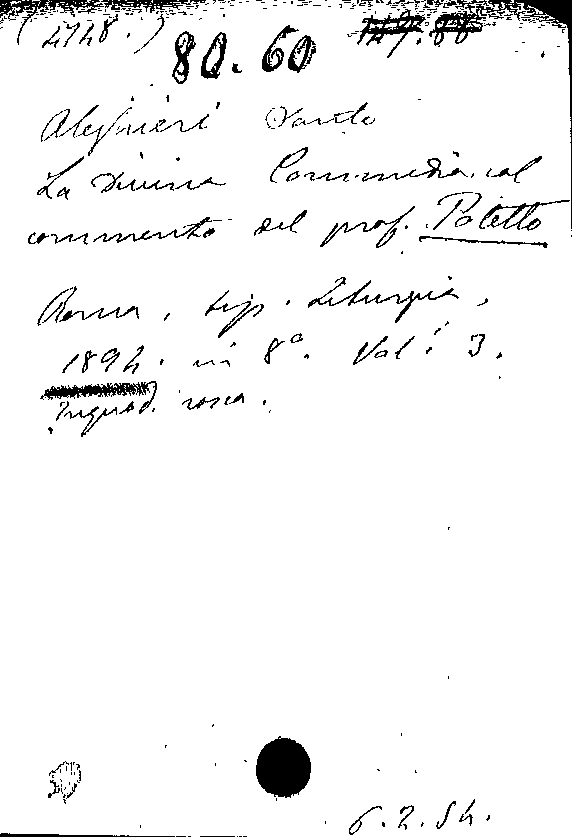 (4748.) 80.60 747.88
Alighieri Dante
La Divina Commedia col
commento del prof. Poletto
Roma, tip. Liturgia,
1894. in 8°. Vol i 3.
rossa.
6.2.54.